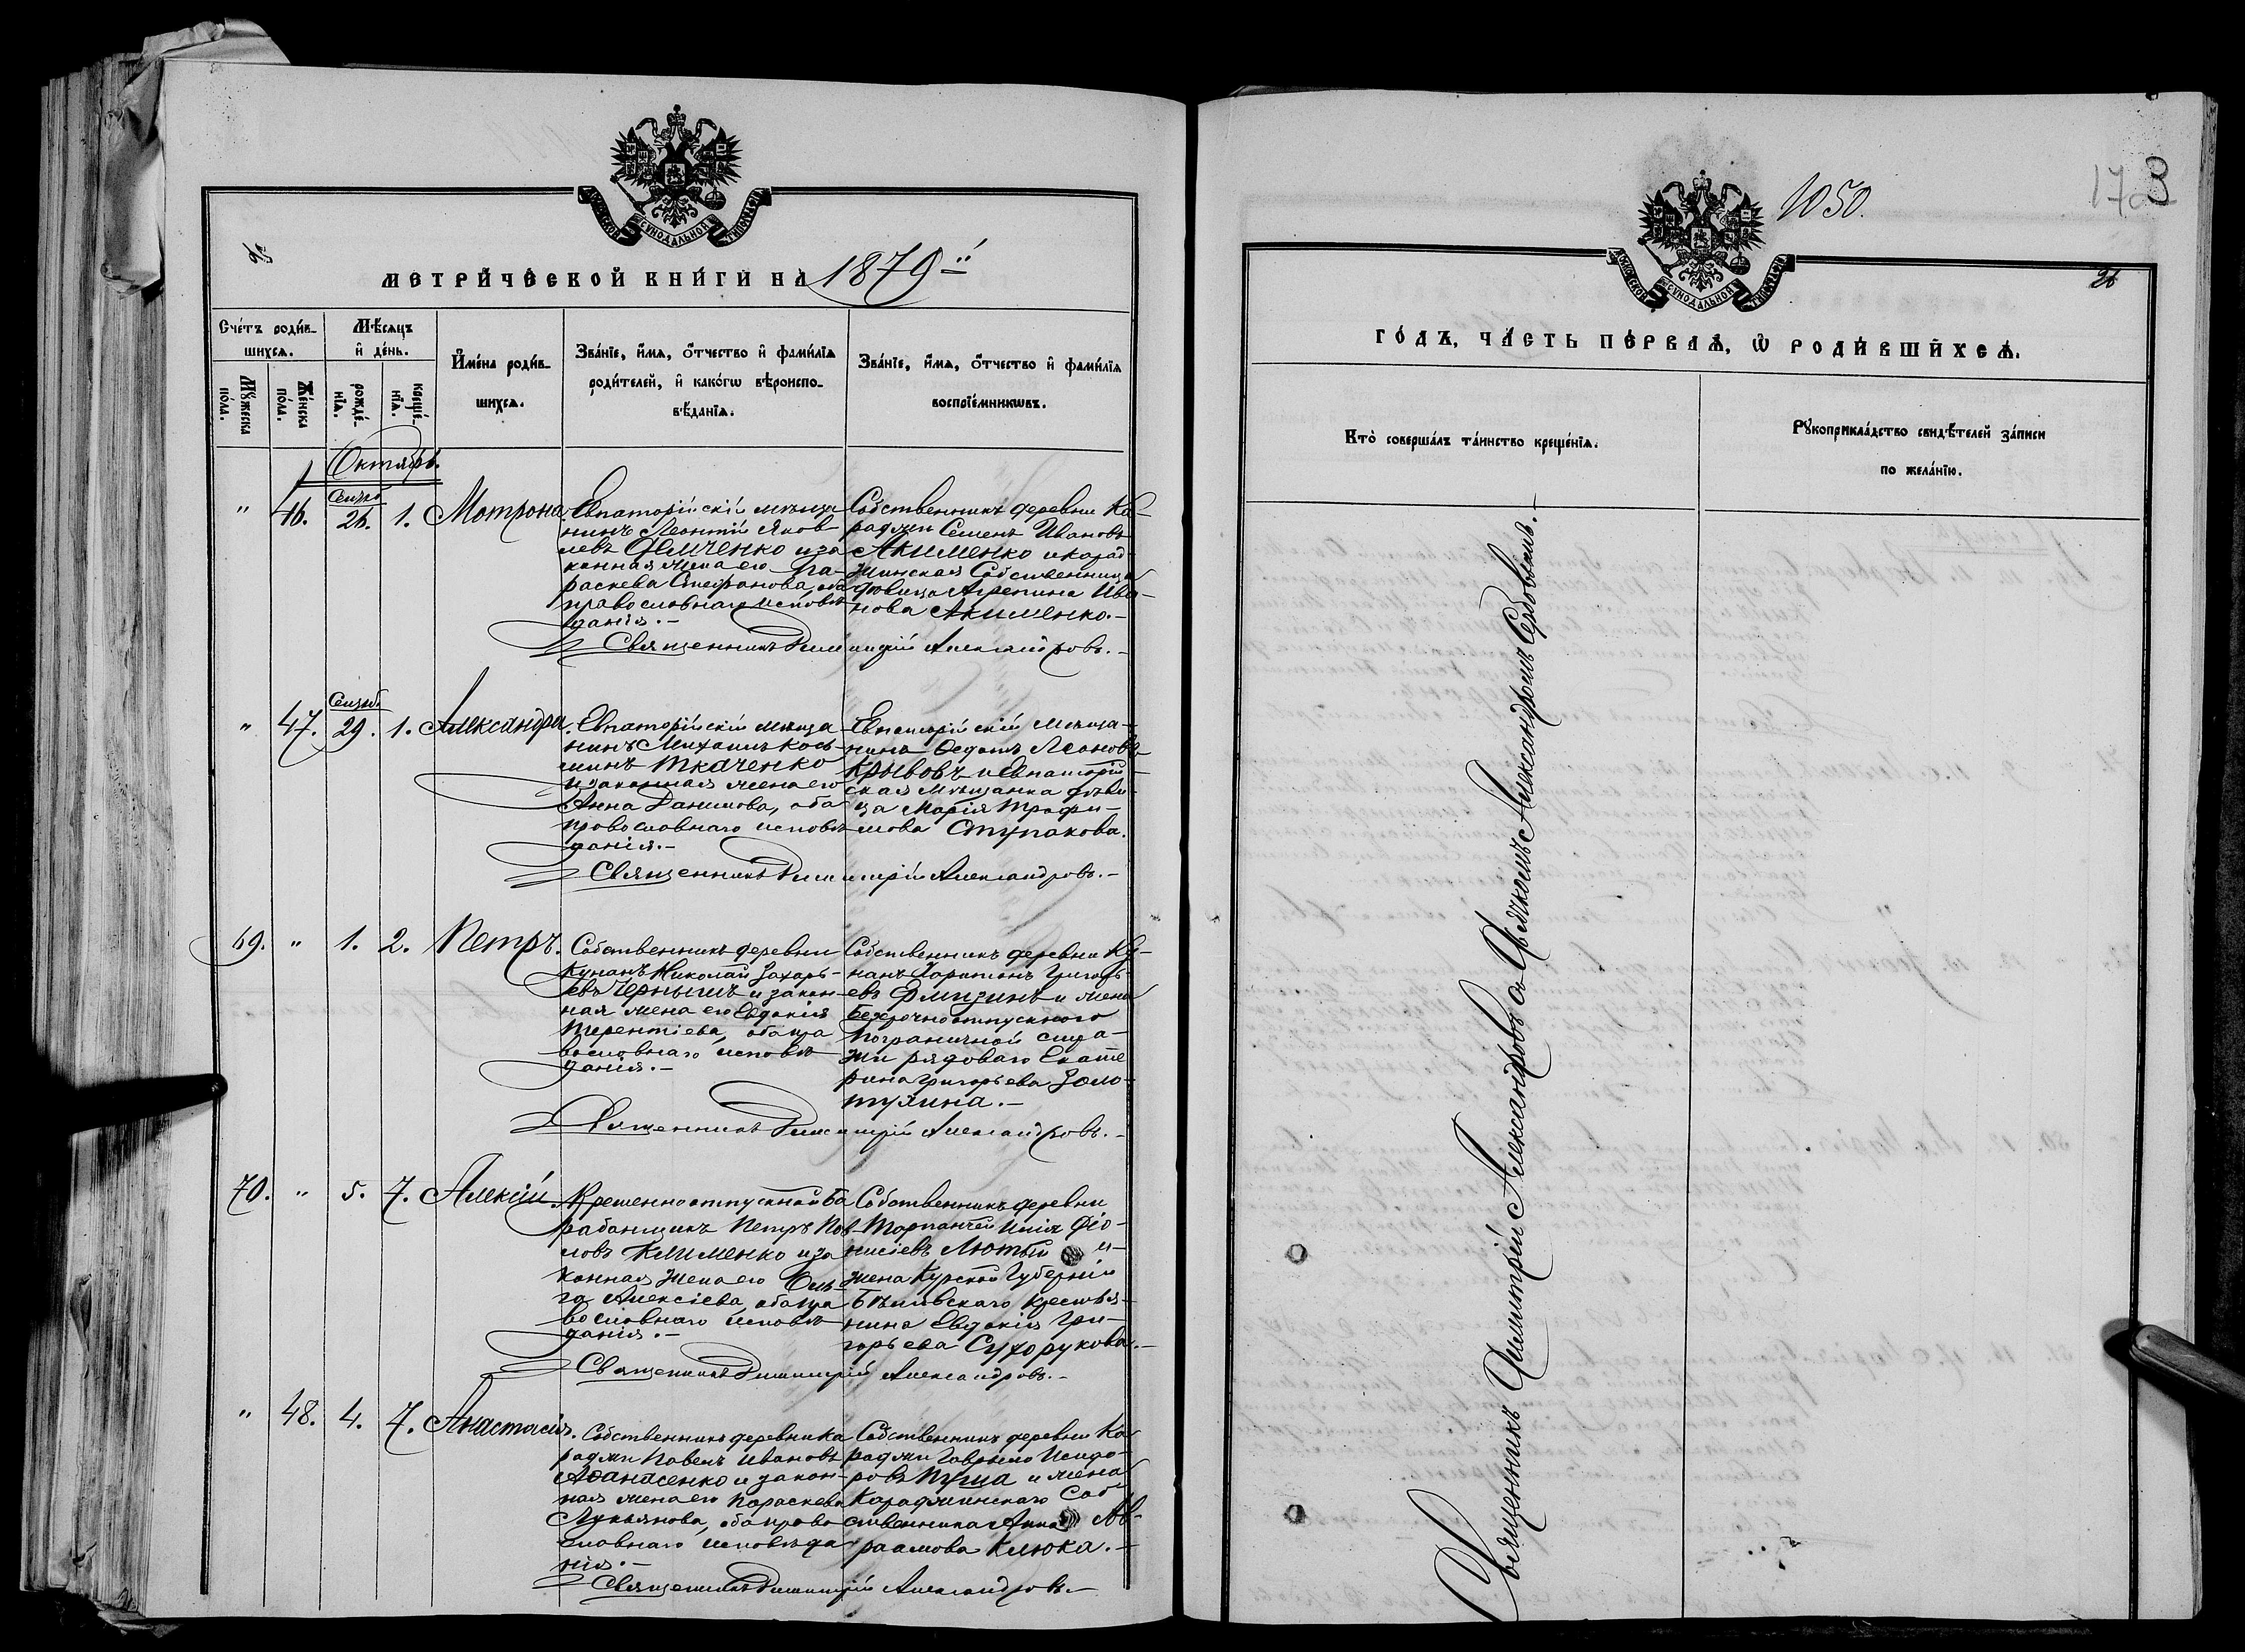 МЕТРИЧЕСКОЙ КНИГИ НА 1879й
Счетъ родив-
шихся.
Мѣсяцъ
и день.
Имена родив-
шихся.
Званіе, имя, отчество и фамилія
родителей, и какого вѣроиспо-
вѣданія.
Званіе, имя, отчество и фамилія
воспріемниковъ.
Мужеска
пола.
Женска
пола.
рожде-
нія.
креще-
нія.
Октябрь.
" 46. Сентяб. 26. 1. Мотрона.
Евпаторійскій мѣща
нинъ Леонтій Яков
левъ Демченко и за
конная жена его Па-
раскева Стефанова, оба
православнаго исповѣ
данія.-
Собственникъ деревни Ка-
раджи Семенъ Ивановъ
Акименко и карад-
жинская Собственница
дѣвица Агрепина Ива-
нова Акименко.-
Священникъ Димитрій Александровъ.-
" 47. Сентяб. 29. 1. Александра.
Евпаторійскій мѣща
нинъ Михаилъ Кось-
минъ Ткаченко
и законная жена его
Анна Данилова, оба
православнаго исповѣ
данія.-
Евпаторійскій мѣща-
нинъ Федотъ Леоновъ
Крывовъ и Евпаторій-
ская мѣщанка дѣви-
ца Марія Трофи-
мова Ступакова.
Священникъ Димитрій Александровъ.-
69. " 1. 2. Петръ.
Собственникъ деревни
Кунанъ Николай Захарь-
евъ Чернышъ и закон-
ная жена его Евдокія
Терентіева, оба пра
вославнаго исповѣ
данія.-
Собственникъ деревни Ку-
нанъ Харитонъ Григорь-
евъ Ямизинъ и жена
безсрочноотпускного
пограничной стра-
жи рядового Екате
рина Григорьева Золо-
тухина.-
Священникъ Димитрій Александровъ.-
70. " 5. 7. Алексій.
Временноотпускной ба
рабанщикъ Петръ Пав
ловъ Клименко и за
конная жена его Оль
га Алексіева, оба пра
вославнаго исповѣ
данія.-
Собственникъ деревни
Тарпанчей Илія Діо-
нисіевъ Лютый и-
жена Курской Губерніи
крестья-
нина Евдокія Гри-
горьева Сухорукова.-
Священникъ Димитрій Александровъ.-
" 48. 4. 7. Анастасія.
Собственникъ деревни Ка
раджи Павелъ Ивановъ
Аѳанасенко и закон-
ная жена его Параскева
Лукьянова, оба право
славнаго исповѣда
нія.-
Собственникъ деревни Ка-
раджи Гаврыло Исидо-
ровъ и жена
Караджинскаго Соб
ственника Анна Ав-
раамова Клюка.-
Священникъ Димитрій Александровъ.-
1050.
173
26
ГОДЪ, ЧАСТЬ ПЕРВАЯ, Ѡ РОДИВШИХСЯ.
Кто совершалъ таинство крещенія.
Рукоприкладство свидѣтелей записи
по желанію.
Священникъ Димитрій Александровъ съ Дьячкомъ Александромъ Сербовымъ.-